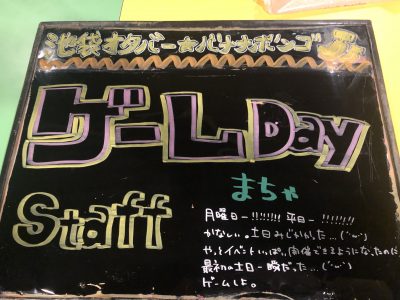 池袋オタバー☆バナナボンゴJr.
ゲームDay
Staff
まちゃ
月曜日ー!!!!!!! 平日ー!!!!!!!
かなしい。土日みじかかった…(´・ω・`)
やっとイベントいっぱい開催できるようになったのに
最初の土日一瞬だった…(´・ω・`)
ゲームしよ。